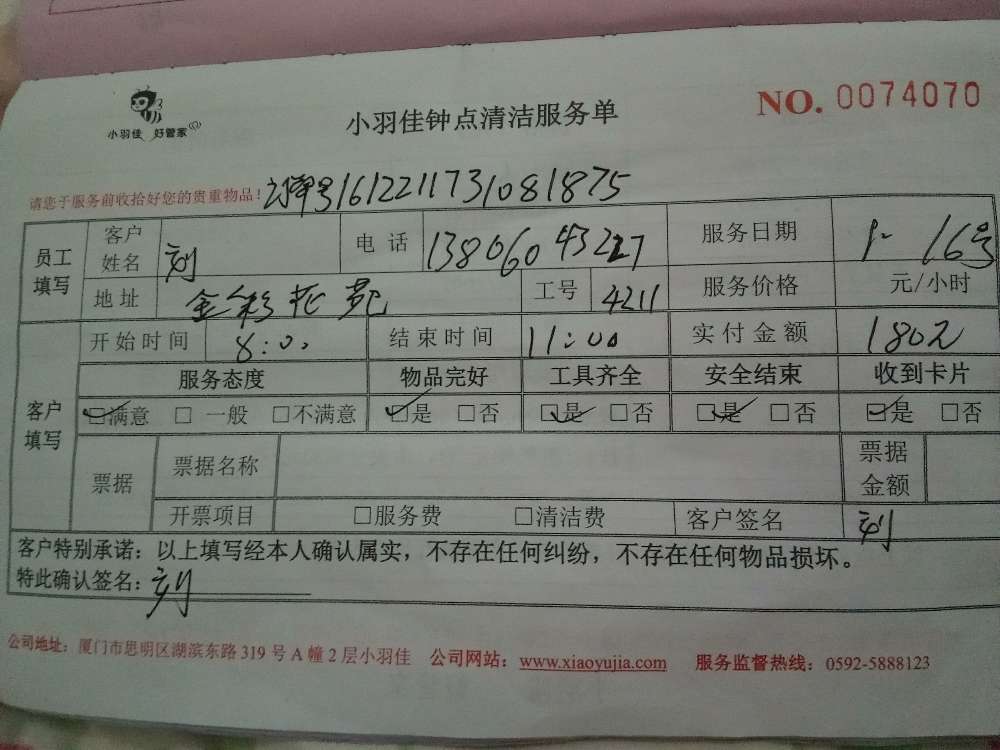 小羽佳 好管家
小羽佳钟点清洁服务单
NO. 0074070
请您于服务前收拾好您的贵重物品！订单号161221173108 1875
员工填写 客户姓名 刘 电话 13806043227 服务日期 1- 16号
地址 金彩花苑 工号 4211 服务价格 元/小时
客户填写 开始时间 8:00 结束时间 11:00 实付金额 180元
服务态度 物品完好 工具齐全 安全结束 收到卡片
☑满意 □一般 □不满意 ☑是 □否 ☑是 □否 ☑是 □否 ☑是 □否
票据 票据名称 票据金额
开票项目 □服务费 □清洁费 客户签名 刘
客户特别承诺：以上填写经本人确认属实，不存在任何纠纷，不存在任何物品损坏。
特此确认签名：刘
公司地址：厦门市思明区湖滨东路319号A幢2层小羽佳 公司网站：www.xiaoyujia.com 服务监督热线：0592-5888123